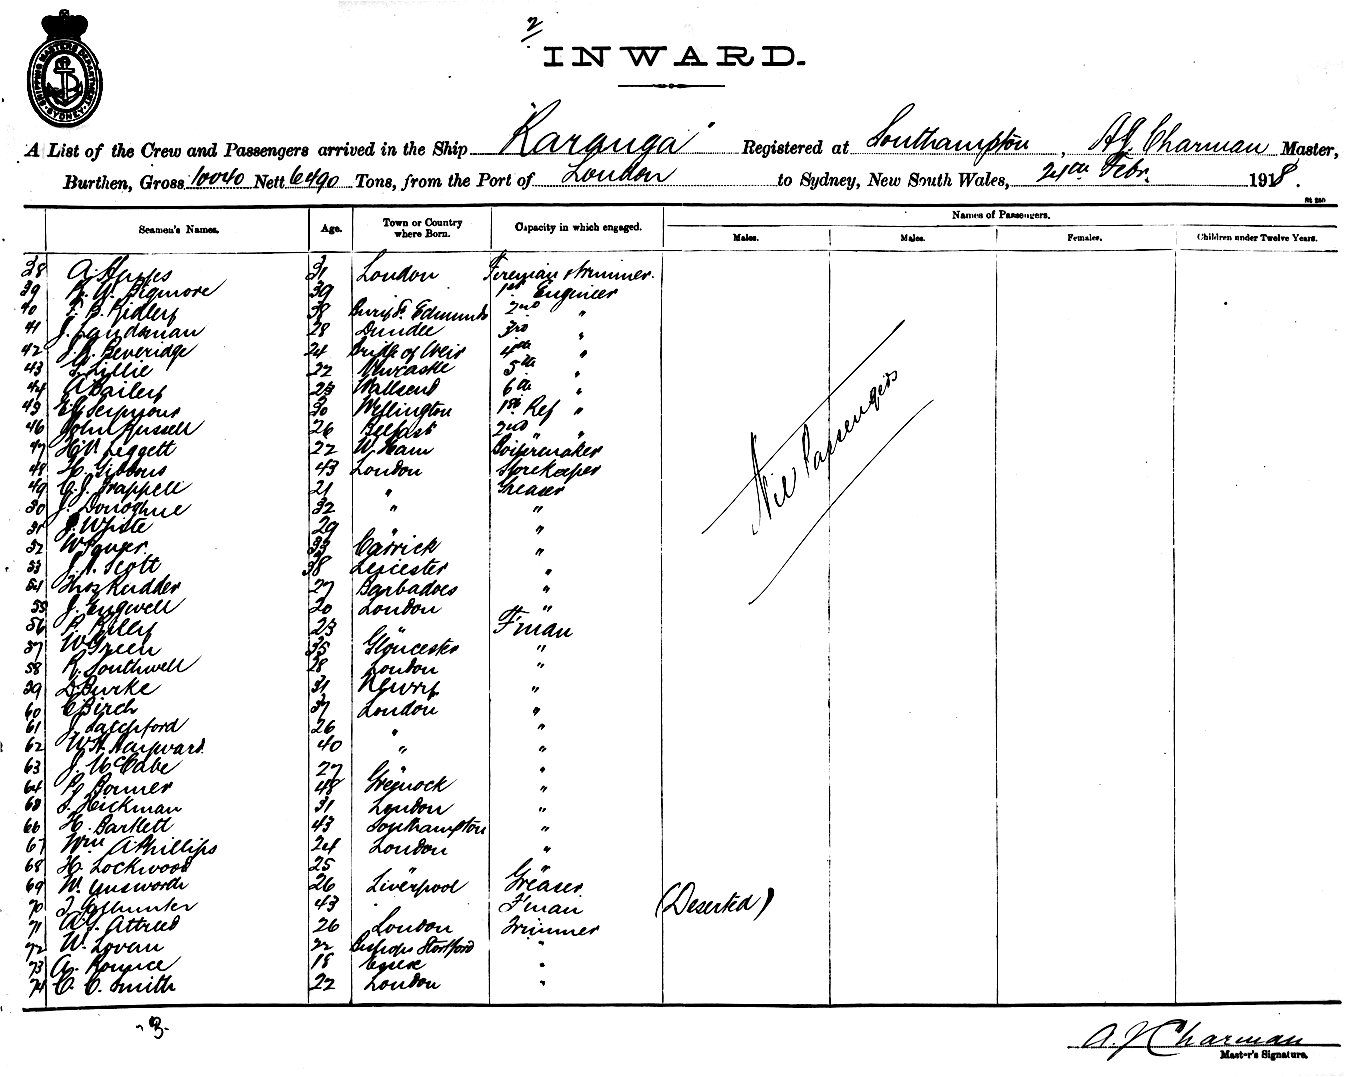 2
INWARD.
SHIPPING MASTERS DEPARTMENT SYDNEY
A List of the Crew and Passengers arrived in the Ship "Raranga" Registered at Southampton, A J Charman Master,
Burthen, Gross 10040 Nett 6490 Tons, from the Port of London to Sydney, New South Wales, 24th Febr. 1918.
Seamen's Names. Age. Town or Country where Born. Capacity in which engaged. Names of Passengers.
Males. Males. Females. Children under Twelve Years.
38 A 31 London Fireman & Trimmer.
39 Bigmore 39 1st Engineer
40 F. B. Ridley 38 Bury St. Edmunds 2nd "
41 J. Landsman 28 Dundee 3rd "
42 J. Beveridge 24 Bridge of Weir 4th "
43 Lillie 22 Newcastle 5th "
44 A Bailey 23 Wallsend 6th "
45 30 Wellington 1st Ref "
46 John Russell 26 Belfast 2nd " "
47 Leggett 22 W. Ham Boilermaker
48 H. Gibbons 43 London Storekeeper
49 G. J. Frappell 21 " Greaser
50 J. Donoghue 32 " "
51 J. White 29 " "
52 W 33 Carrick "
53 J. A. Scott 38 Leicester "
54 Thos Rudder 27 Barbadoes "
55 J. Engwell 20 London "
56 P. Reilly 23 " F'man
57 W Green 35 Gloucester "
58 R. Southwell 28 London "
59 D Burke 31 Newry "
60 C Birch 37 London "
61 J. Latchford 26 " "
62 W. H. Hayward. 40 " "
63 J. McCabe 27 " "
64 P Bonner 48 Greenock "
65 Hickman 31 London "
66 H. Bartlett 43 Southampton "
67 Wm A Phillips 24 London "
68 H. Lockwood 25 " "
69 W. Unsworth 26 Liverpool Greaser
70 43 F'man (Deserted)
71 Attried 26 London Trimmer
72 W. Lovan 22 Bishops Stortford "
73 A. Rounce 18 Essex "
74 C. C. Smith 22 London "
Nil Passengers
A. J Charman
Master's Signature.